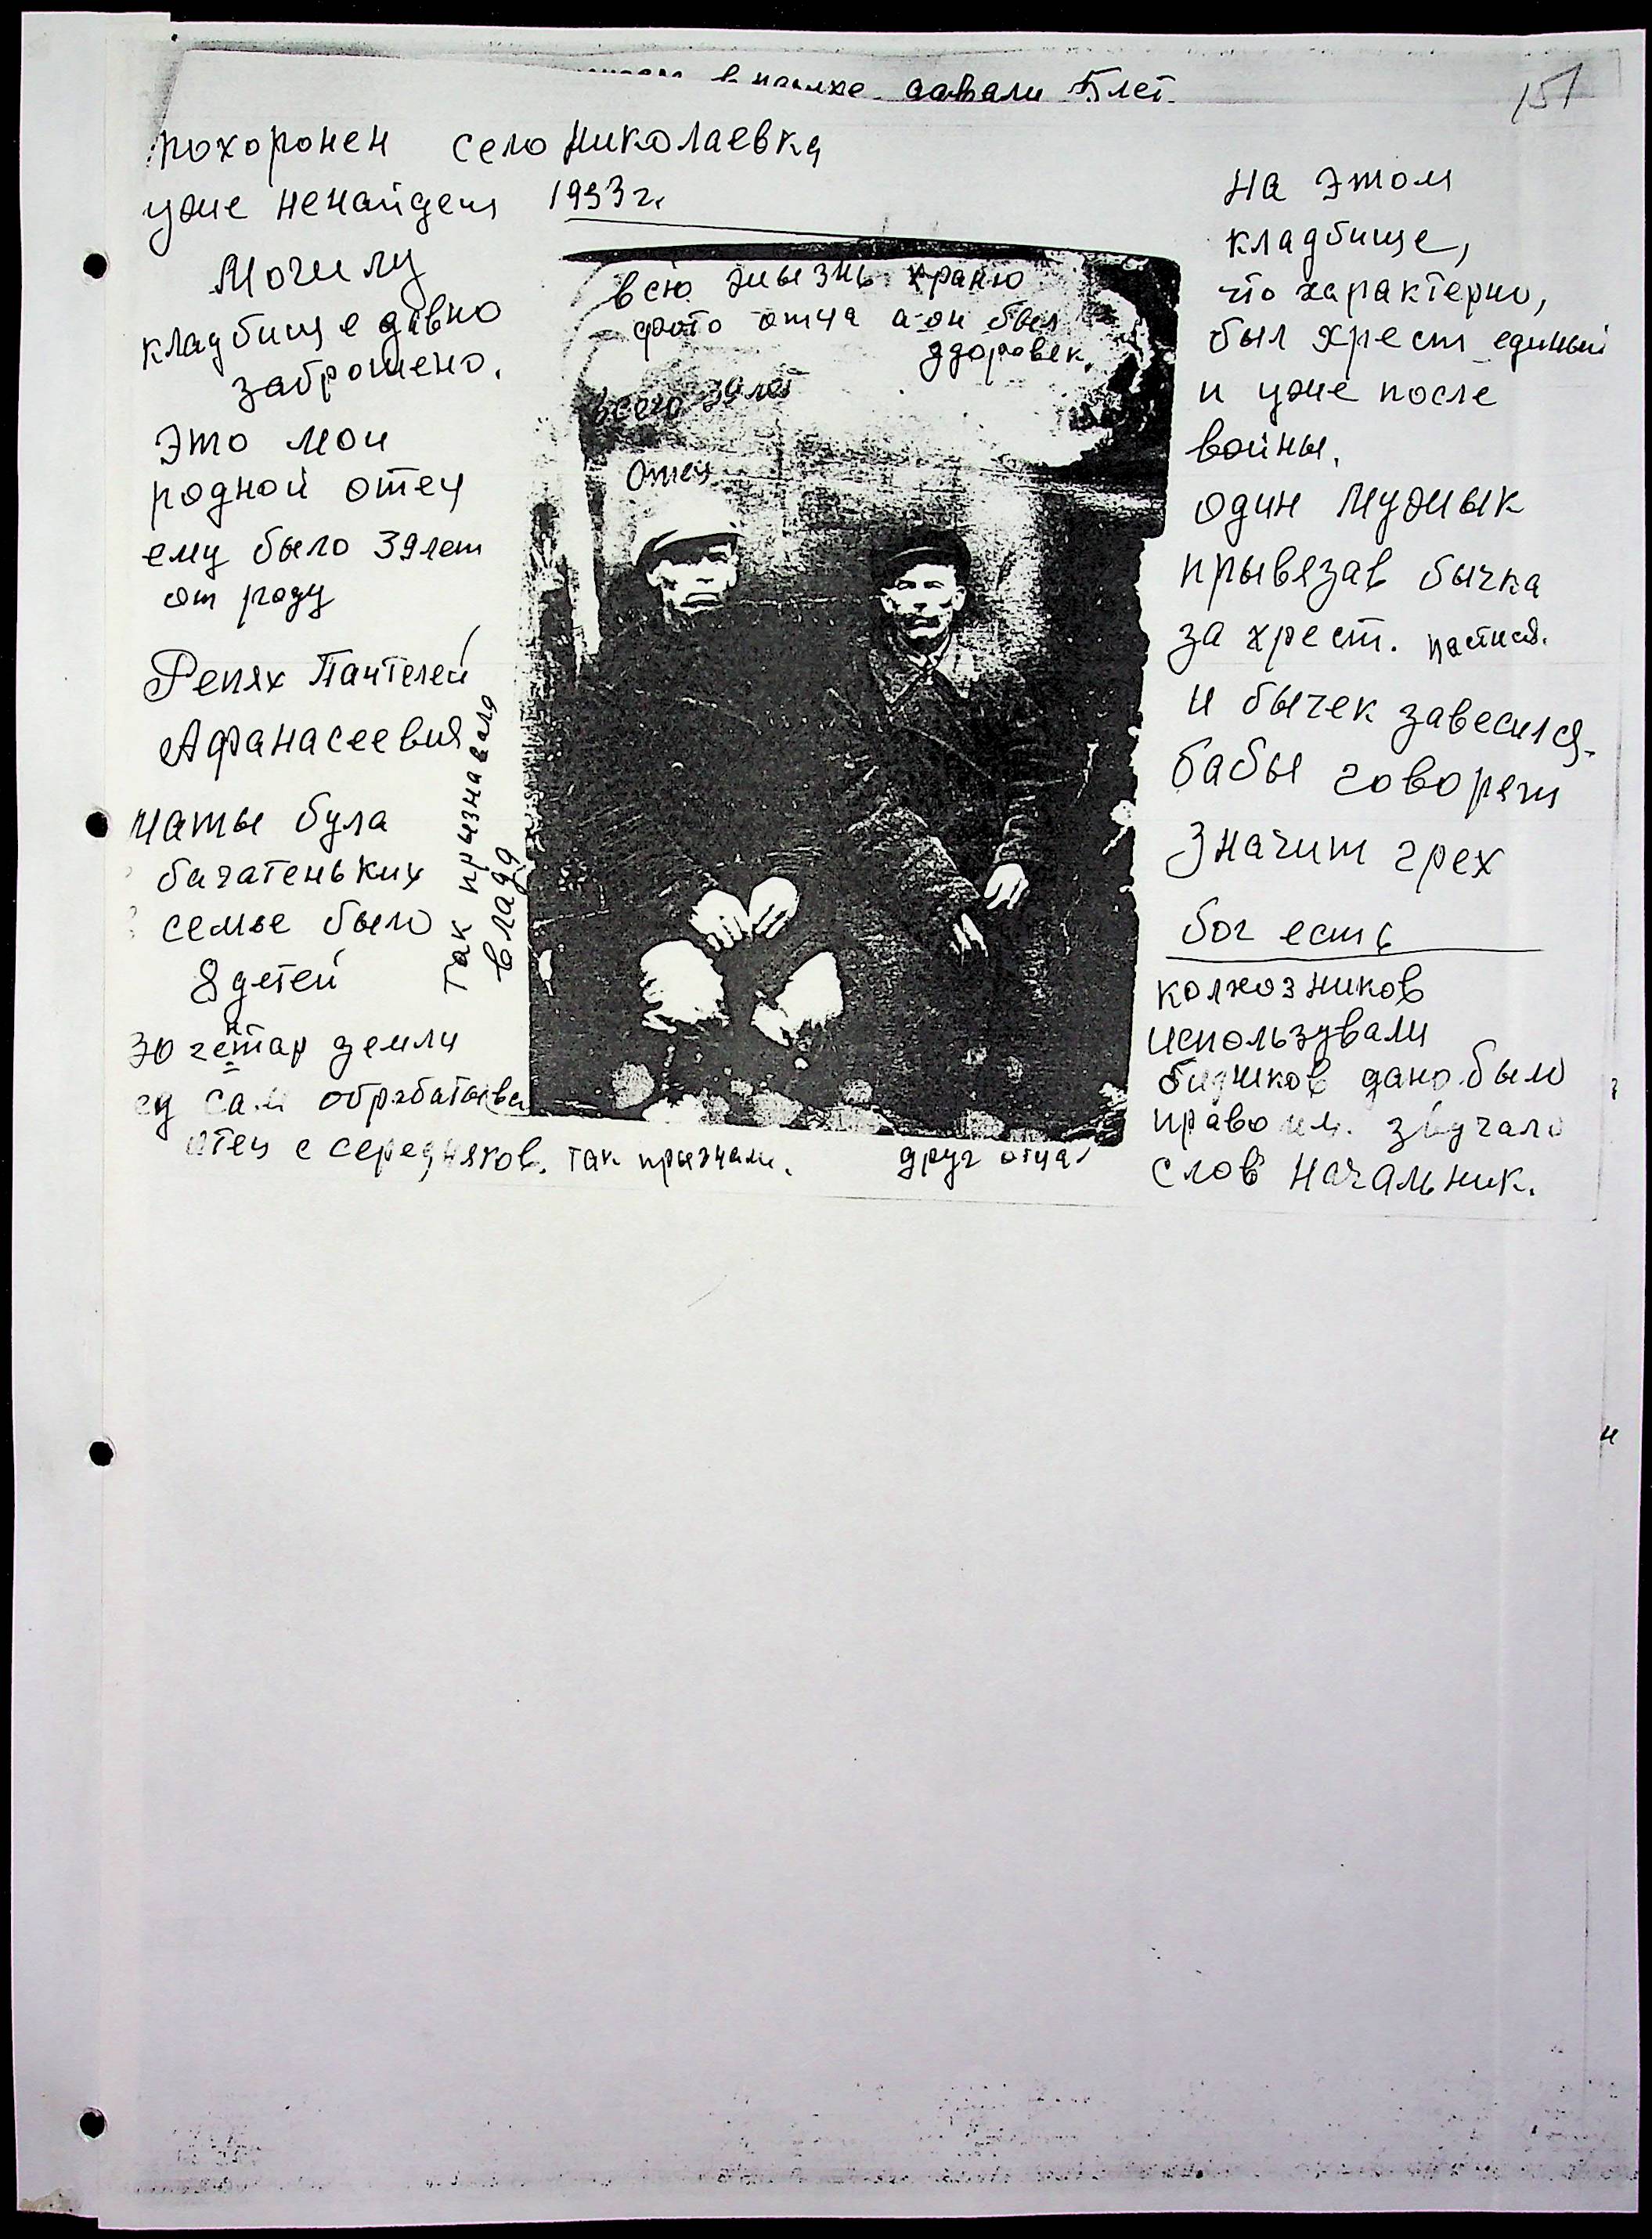 давали 5 лет.
151
похоронен село Николаевка
уже ненайдеш 1933 г.
Могилу
кладбище давно
заброшено.
Это мой
родной отец
ему было 39 лет
от роду
Репях Пантелей
Афанасеевич
Маты була
багатеньких
семье было
8 детей
так прызнавала
влада
30 гектар земли
сам обрабатывал
отец с середняков. так прызнали.
всю жызнь храню
фото отца а он был
здоровяк.
всего 39 лет
Отец
друг отца
На этом
кладбище,
что характерно,
был хрест единый
и уже после
войны.
один мужык
прывязав бычка
за хрест. пастися.
и бычек завесился.
бабы говорят
Значит грех
бог есть
колхозников
использували
бидняков дано было
право им. звучало
слов начальник.